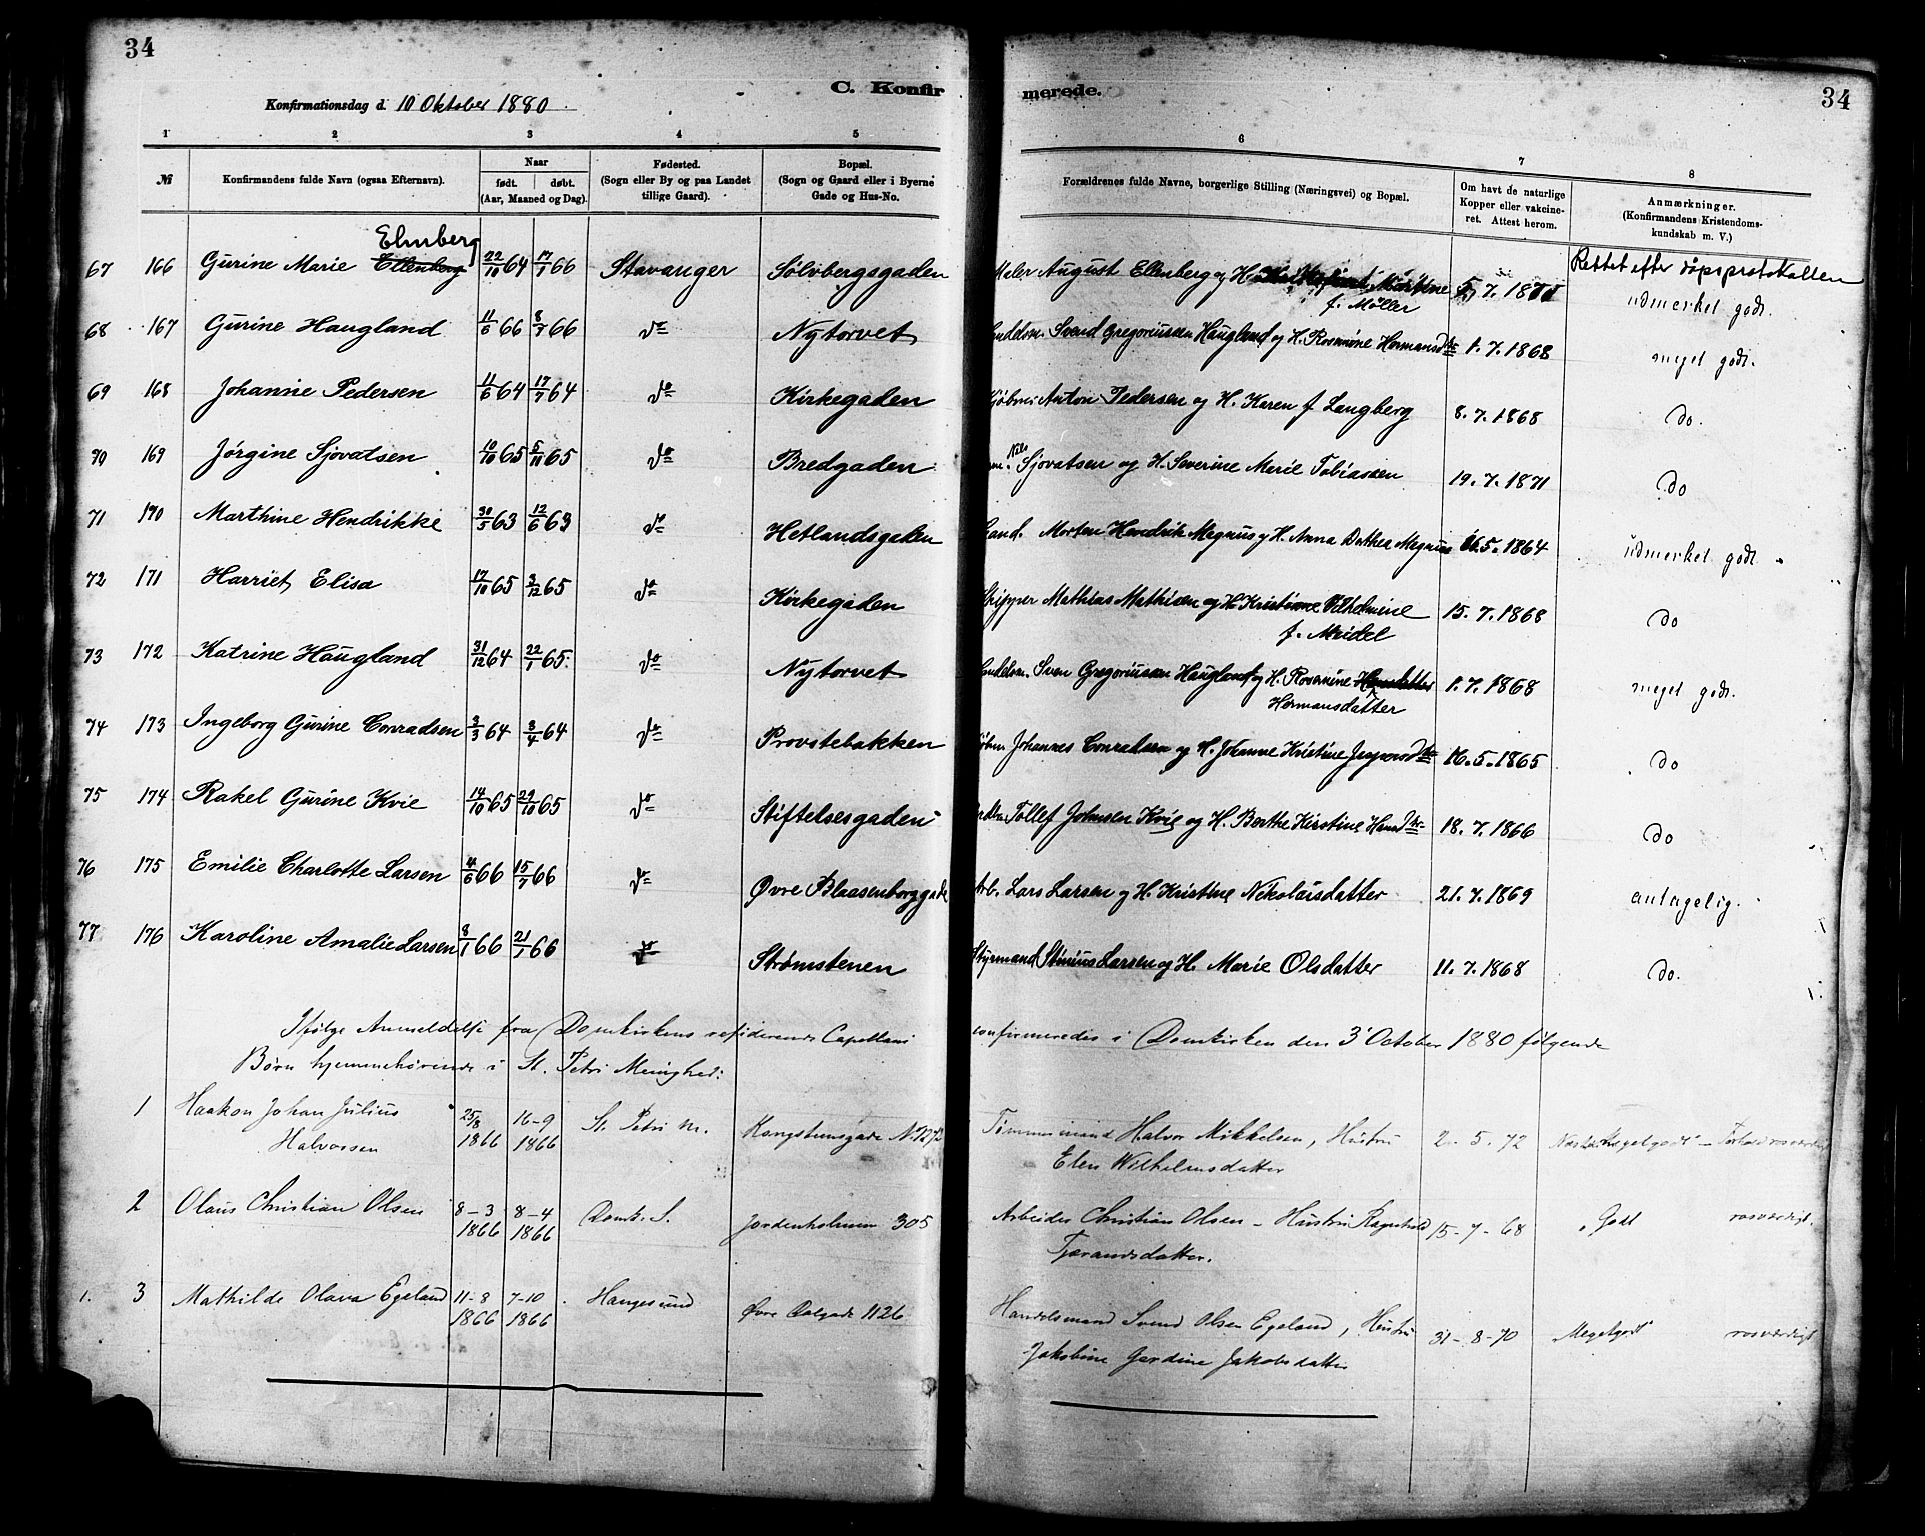 34
C. Konfirmerede.
34
Konfirmationsdag d. 10 Oktober 1880.
1 2 3 4 5 6 7 8
№ Konfirmandens fulde Navn (ogsaa Efternavn). Naar født. døbt. (Aar, Maaned og Dag). Fødested. (Sogn eller By og paa Landet tillige Gaard). Bopæl. (Sogn og Gaard eller i Byerne Gade og Hus-No. Forældrenes fulde Navne, borgerlige Stilling (Næringsvei) og Bopæl. Om havt de naturlige Kopper eller vakcineret. Attest herom. Anmærkninger. (Konfirmandens Kristendomskundskab m. V.)
Elmberg
Rettet efter dåpsprotokollen
67 166 Gurine Marie Ellenberg 22/10 64 17/1 66 Stavanger Sølvbergsgaden Maler August Ellenberg og H. Martine 5.7.1871 udmerket godt.
f. Møller
68 167 Gurine Haugland 11/6 66 8/7 66 do Nytorvet Handelsm. Svend Gregoriussen Haugland og H. Rosmine Hermansdtr 1.7.1868 meget godt.
69 168 Johanne Pedersen 11/6 64 17/7 64 do Kirkegaden Kjøbm. Anton Pedersen og H. Karen f. Langberg 8.7.1868 do.
70 169 Jørgine Sjovatsen 10/10 65 5/11 65 do Bredgaden Nils Sjovatsen og H. Severine Marie Tobiassen 19.7.1871 do
71 170 Marthine Hendrikke 30/5 63 12/6 63 do Hetlandsgaden Morten Hendrik Magnus og H. Anna Dathea Magnus 16.5.1864 udmerket godt.
72 171 Harriet Elisa 17/10 65 3/12 65 do Kirkegaden Skipper Mathias Mathisen og H. Kristinne Vilhelmine 15.7.1868 do
f. Meidel
73 172 Katrine Haugland 31/12 64 22/1 65. do Nytorvet Handelsm. Sven Gregoriussen Haugland og H. Rosmine Hansdatter 1.7.1868 meget godt.
Hermansdatter
74 173 Ingeborg Gurine Conradsen 3/3 64 3/4 64 do Provstebakken Kjøbm Johannes Conradsen og H. Johanne Kristine Jespersdtr 16.5.1865 do
75 174 Rakel Gurine Kvie 14/10 65 29/10 65 do Stiftelsesgaden Tollef Johnsen Kvie og H. Berthe Kirstine Hansdtr 18.7.1866 do
76 175 Emilie Charlotte Larsen 4/6 66 15/7 66 do Øvre Blaasenborggade Arb. Lars Larsen og H. Kristine Nikolaisdatter 21.7.1869 antagelig.
77 176 Karoline Amalie Larsen 8/1 66 21/1 66 do Strømstenen Styrmand Stinius Larsen og H. Marie Olsdatter 11.7.1868 do.
Ifølge Anmeldelse fra Domkirkens residerende Capellan confirmeredes i Domkirken den 3' October 1880 følgende
Børn hjemmehørende i St. Petri Menighed:
1 Haakon Johan Julius 25/8 16-9 St. Petri M. Kongstunsgade N. 1272 Tømmermand Halvor Mikkelsen, Hustru 2.5.72 Meget godt
Halvorsen 1866 1866 Elen Wilhelmsdatter
2 Olaus Christian Olsen 8-3 8-4 Domk. S. Jordenholmen 305 Arbeider Christian Olsen - Hustru Ragnhild 15-7-68 Godt rosværdigt.
1866 1866 Tjerandsdatter.
1. 3 Mathilde Olava Egeland 11-8 7-10 Haugesund Øvre Dalgade 1126 Handelsmand Svend Olsen Egeland, Hustru 31-8-70 "Megetgodt" rosværdigt
1866 1866 Jakobine Gurdine Jakobsdatter